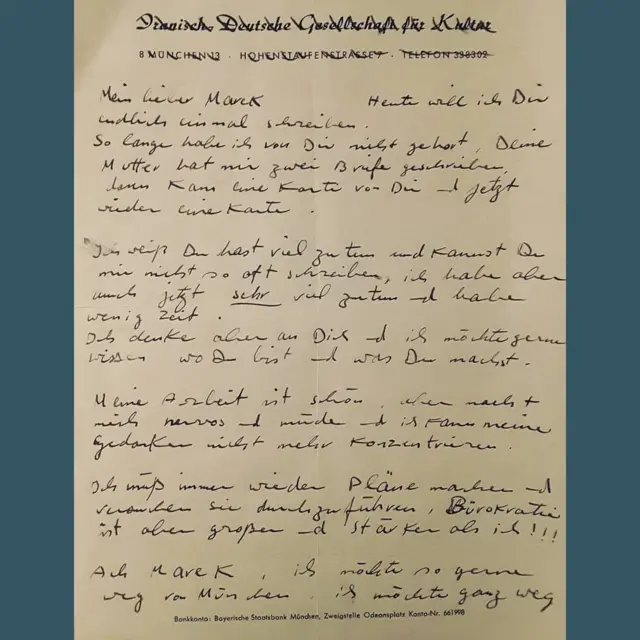 Iranisch Deutsche Gesellschaft für Kultur
8 MÜNCHEN 13 · HOHENSTAUFENSTRASSE 7 · TELEFON 338302
Mein lieber Marek Heute will ich Dir
endlich einmal schreiben.
So lange habe ich von Dir nichts gehört, Deine
Mutter hat mir zwei Briefe geschrieben,
dann kam eine Karte von Dir und jetzt
wieder eine Karte.
Ich weiß Du hast viel zu tun und kannst Du
mir nicht so oft schreiben, ich habe aber
auch jetzt sehr viel zu tun und habe
wenig Zeit.
Ich denke aber an Dich und ich möchte gerne
wissen wo Du bist und was Du machst.
Meine Arbeit ist schön, aber macht
mich nervös und müde und ich kann meine
Gedanken nicht mehr konzentrieren.
Ich muß immer wieder Pläne machen und
versuchen sie durchzuführen, Bürokratie
ist aber großer und stärker als ich!!!
Ach Marek, ich möchte so gerne
weg von München, ich möchte ganz weg
Bankkonto: Bayerische Staatsbank München, Zweigstelle Odeonsplatz Konto-Nr. 661998